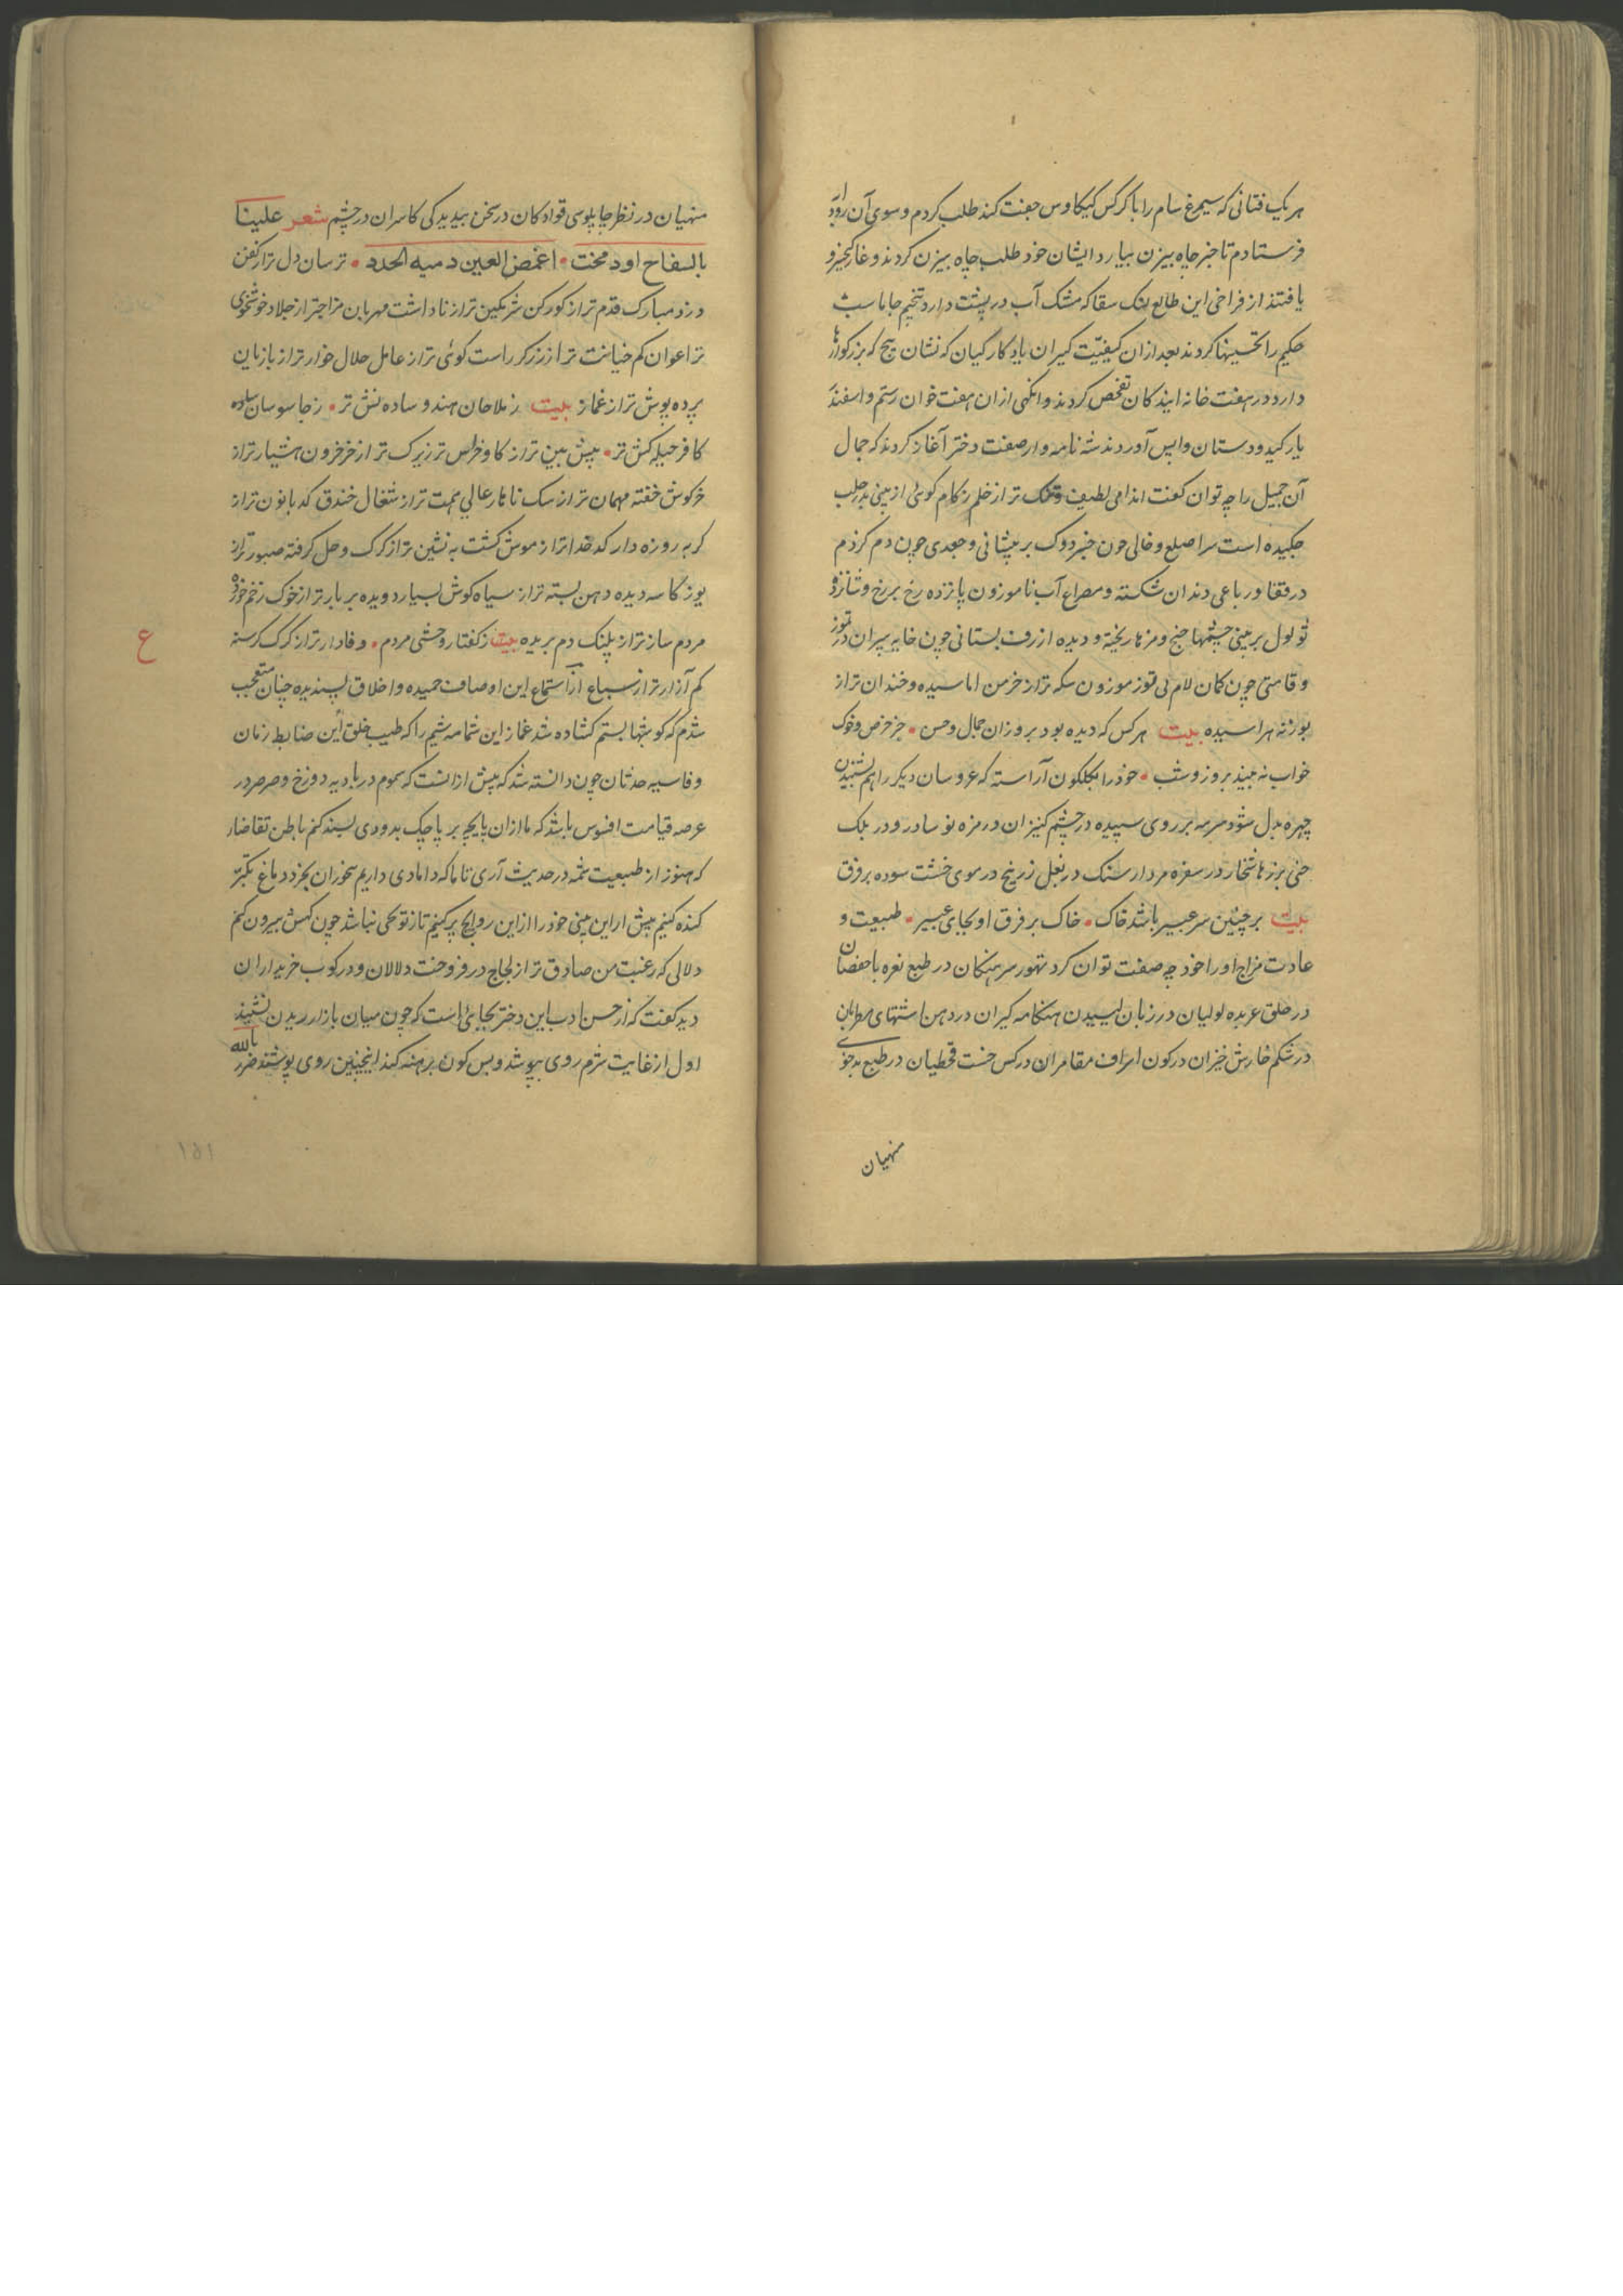 هر یک فتانی که سیمرغ سام را با کرکس کیکاوس جفت کند طلب کردم و سوی آن
فرستادم تا خبر چاه بیزن بیارد ایشان خود طلب چاه بیزن کردند و غار کیخسرو
یافتند از فراخی این طالع تنک سقا که مشک آب در پشت دارد تنجیم جاماسب
حکیم را تحسینها کردند بعد از ان کیفیت کیران یادکار کیان که نشان
دارد در هفت خانه تفحص کردند وانکهی از ان هفت خوان رستم و اسفند
یار کید و دستان واپس آوردند شه نامه وار صفت دختر آغاز کردند که جمال
آن جمیل را چه توان کفت اندامی لطیف و تنک تر از خلم زکام کوئی از بینی
چکیده است سر اصلع و خالی چون خبزدوک بر پیشانی و جعدی چون دم کژدم
در قفا و رباعی دندان شکسته و مصراع آب ناموزون پانزده رخ بر رخ و شانزده
تولول بر بینی چشمها و مزها ریخته و دیده از رف بستانی چون خایه پیران در تموز
و قامتی چون کمان لام بی توز موزون سکه تر از خرمن اماسیده و خندان تر از
بوزنه هراسیده بیت هر کس که دیده بود بروز ان جمال و حسن • جز خرس و خوک
خواب نه بیند بروز و شب • خود را بکلکون آراسته که عروسان دیکر را هم
چهره بدل شود سرمه بر روی سپیده در چشم کنیزان در مزه نوسادر و در پلک
شخار در سفره مردار سنک در بغل زرنیخ در موی خشت سوده بر فرق
بیت بر چنین سر عبیر باشد خاک • خاک بر فرق او بجای عبیر • طبیعت و
عادت مزاج او را خود چه صفت توان کرد تهور سرهنکان در طبع نعره
در حلق عربده لولیان در زبان لیسیدن هنکامه کیران در دهن اشتهای مطربان
در شکم خارش خیزان در کون اسراف مقامران در کس خست قحطیان در طبع بدخوئی
منهیان
منهیان در نظر چاپلوسی قوادکان در سخن بیدیدکی کاسران در چشم شعر علینا
بالسفاح اود محنت • اغمض العین دمیه الحدد • ترسان دل تر از کفن
دزد مبارک قدم تر از کورکن شرمکین تر از ناداشت مهربان مزاجتر از جلاد خوشخوی
تر از عوان کم خیانت تر از زرکر راست کوئی تر از عامل حلال خوار تر از بازیان
پرده پوش تر از غماز بیت ز ملاحان هندو ساده نش تر • ز جاسوسان ساده
کافر حیله کش تر • پیش بین تر از کاو خراس تر زیرک تر از خر خرون هشیار تر از
خرکوش خفته مهمان تر از سک ناهار عالی همت تر از شغال خندق کدبانون تر از
کربه روزه دار کدخدا تر از موش کشت به نشین تر از کرک وحل کرفته صبور تر از
یوز کاسه دیده دهن بسته تر از سیاه کوش بسیار دویده بربار تر از خوک زخم خورده
مردم ساز تر از پلنک دم بریده بیت ز کفتار وحشی مردم • وفادار تر از کرک کرسنه
ع
کم آزار تر از سباع از استماع این اوصاف حمیده و اخلاق پسندیده چنان متعجب
شدم که کوشها بستم کشاده شد غماز این شمامه شمیم را که طیب خلق این ضابط زنان
وفاسیه حدثان چون دانسته شد که پیش از انست که سموم در بادیه دوزخ و صرصر در
عرصه قیامت افسوس باشد که ما از ان پایچه بر پاچک بدودی بسنده کنم باطن تقاضا
که هنوز از طبیعت شمه در حدیث آری تا ما که دامادی داریم بخوران بخرد دماغ تکبر
کنده کنیم پیش از این بینی خود را از این روایح پر کنیم تا زتو بخی نباشد چون کهش بیرون کنم
دلالی که رغبت من صادق تر از لجاج در فروخت دلالان و در کوب خریداران
دید کفت که از حسن ادب این دختر بجائی است که چون میان بازار ریدن نشیند
اول از غایت شرم روی بپوشد و پس کون برهنه کند اینچنین روی پوشنده ضرر بالله
۱۵۱